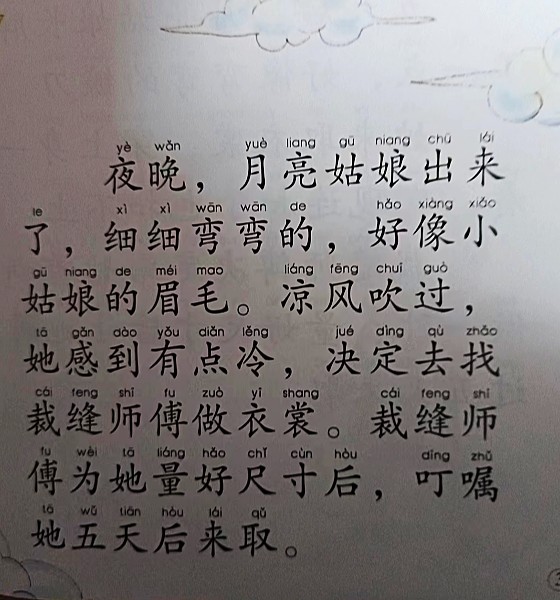 yè wǎn yuè liang gū niang chū lái
夜晚，月亮姑娘出来
le xì xì wān wān de hǎo xiàng xiǎo
了，细细弯弯的，好像小
gū niang de méi mao liáng fēng chuī guò
姑娘的眉毛。凉风吹过，
tā gǎn dào yǒu diǎn lěng jué dìng qù zhǎo
她感到有点冷，决定去找
cái feng shī fu zuò yī shang cái feng shī
裁缝师傅做衣裳。裁缝师
fu wèi tā liáng hǎo chǐ cùn hòu dīng zhǔ
傅为她量好尺寸后，叮嘱
tā wǔ tiān hòu lái qǔ
她五天后来取。